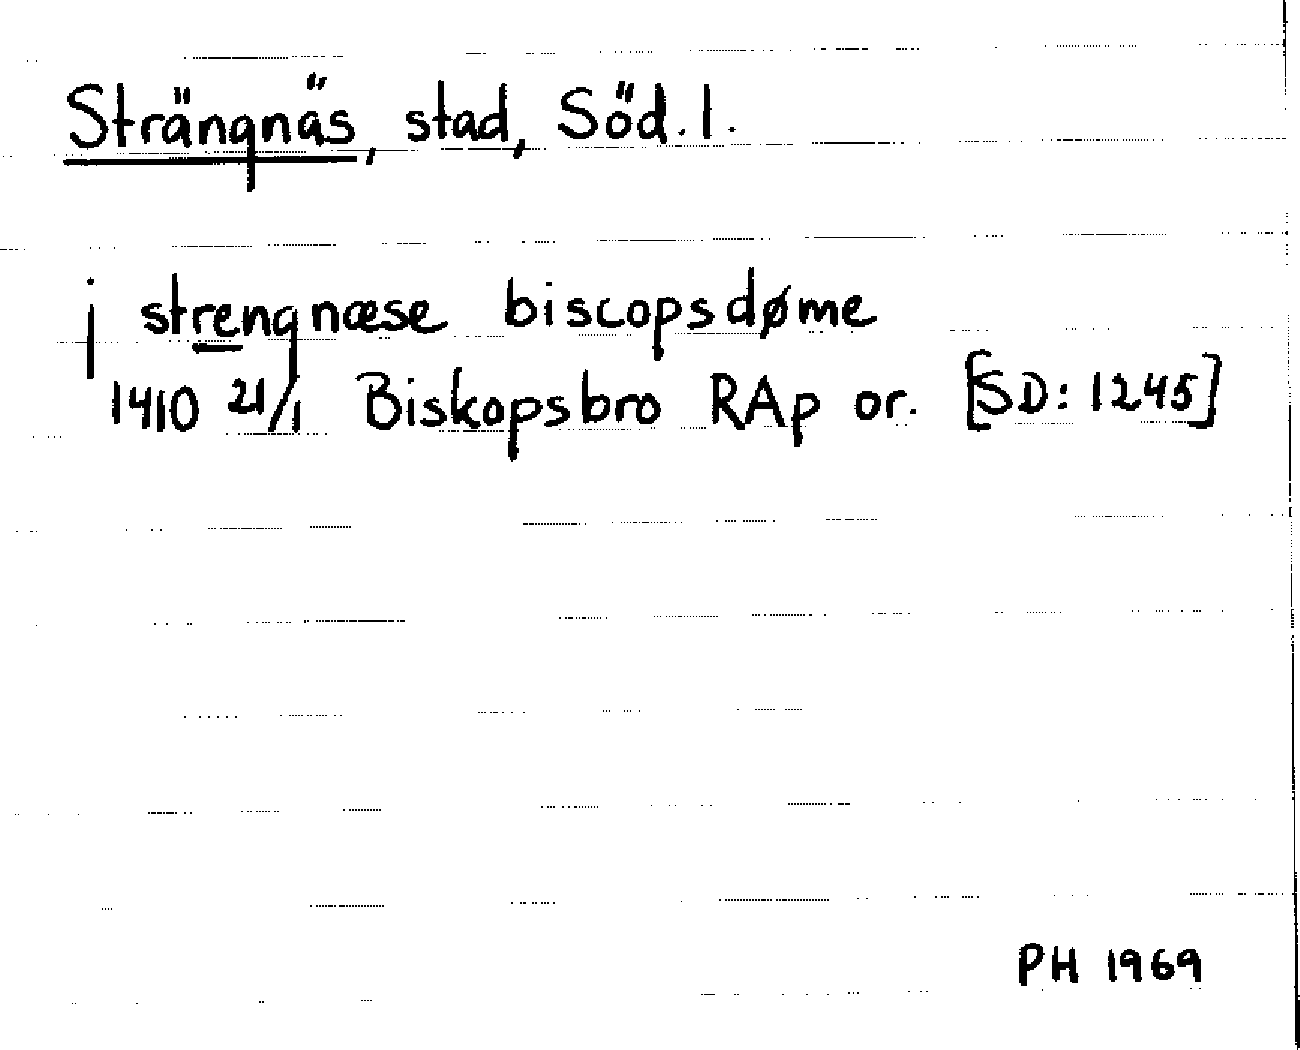 Strängnäs, stad, Söd. l.
j strengnæse biscopsdøme
1410 21/1 Biskopsbro RAp or. [SD: 1245]
PH 1969